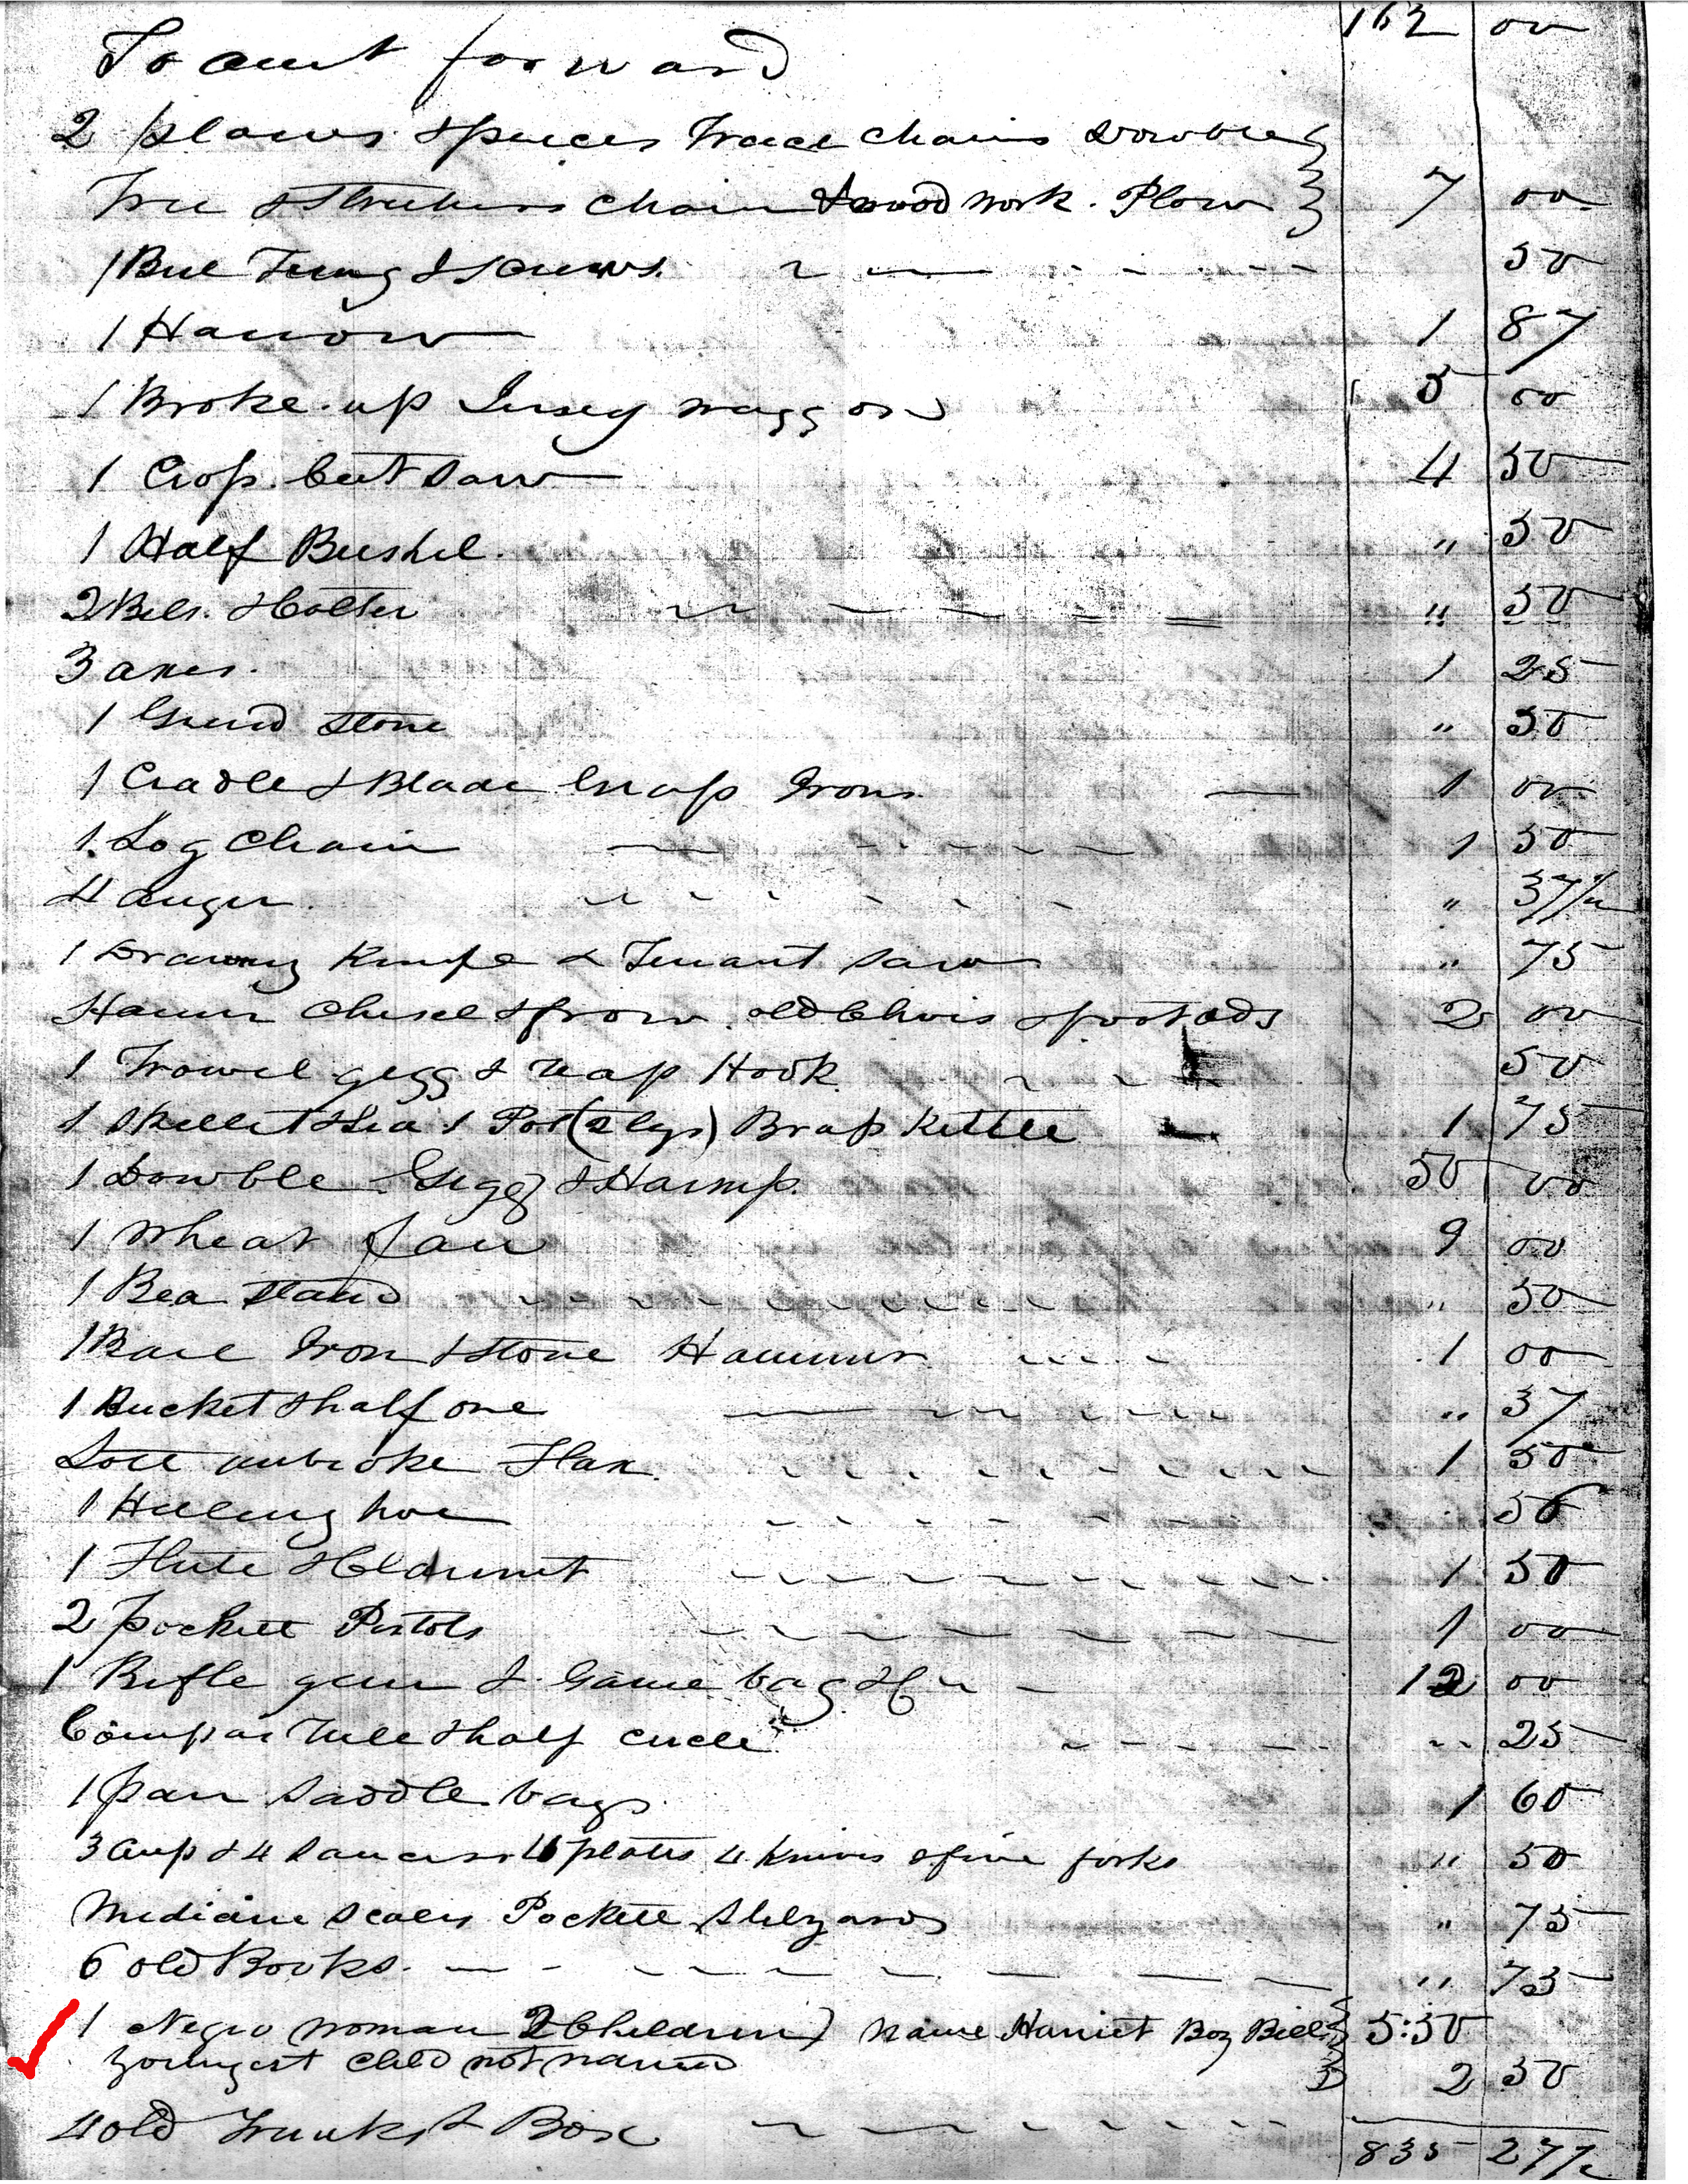 To amt forward 162 00
2 plows & spuces Trace chains Dowble
Tree & Struchers chain & wood work. Plow 7 00
1 Bul Tung & screws 50
1 Harrow 1 87
1 Broke up Jersey waggon 5 00
1 Crop Cut Saw 4 50
1 Half Bushel. " 50
2 Bels. & Colter " 50
3 axes. 1 25
1 Grind stone " 50
1 Cradle & Blade Irons 1 00
1 Log Chain 1 50
4 auger " 37 1/2
1 Drawing Knife & Tenant saw " 75
Hamr Chisel & frow. old Chis & foot ads 2 00
1 Trowel gegg & reap Hook 50
1 Skillet & Lid 1 Pot (2 legs) Brass Kettle 1 75
1 Dowble Gigg & Harnep. 50 00
1 Wheat fan 9 00
1 Bea stand " 50
1 Bare Iron & Stone Hammer 1 00
1 Bucket & half one " 37
Lott unbroke Flax. 1 50
1 Hilling hoe 50
1 Flute & Clarinet 1 50
2 pockett Pistols 1 00
1 Rifle gun & Game bag &c 12 00
Compas rule & half circle " 25
1 pair saddle bags 1 60
3 cups & 4 saucers 4 plates 4 knives & five forks " 50
Medicine scales Pockett Stilyards " 75
6 old Books. " 75
1 Negro woman 2 Children) Name Harriet Boy Bill 5:50
youngest child not named
4 old Trunks & Box 2 50
835 27 1/2